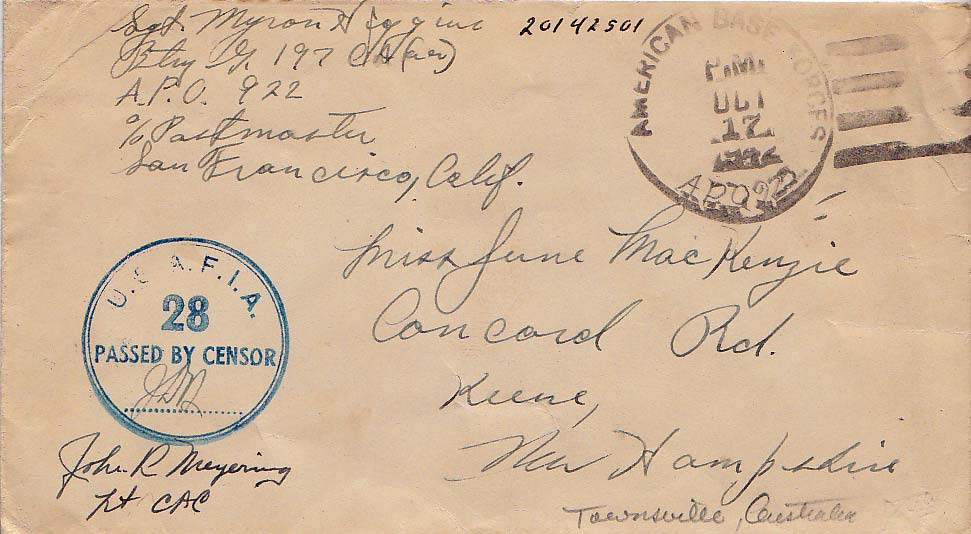 Sgt. Myron Higgins 20142501
Btry G. 197 CA (AA)
A.P.O. 922
c/o Postmaster
San Francisco, Calif.
AMERICAN BASE FORCES
P.M.
OCT
17
A.P.O. 922
Miss June MacKenzie
Concord Rd.
Keene,
New Hampshire
Townsville, Australia
U.S.A.F.I.A.
28
PASSED BY CENSOR
John R Meyering
Lt CAC